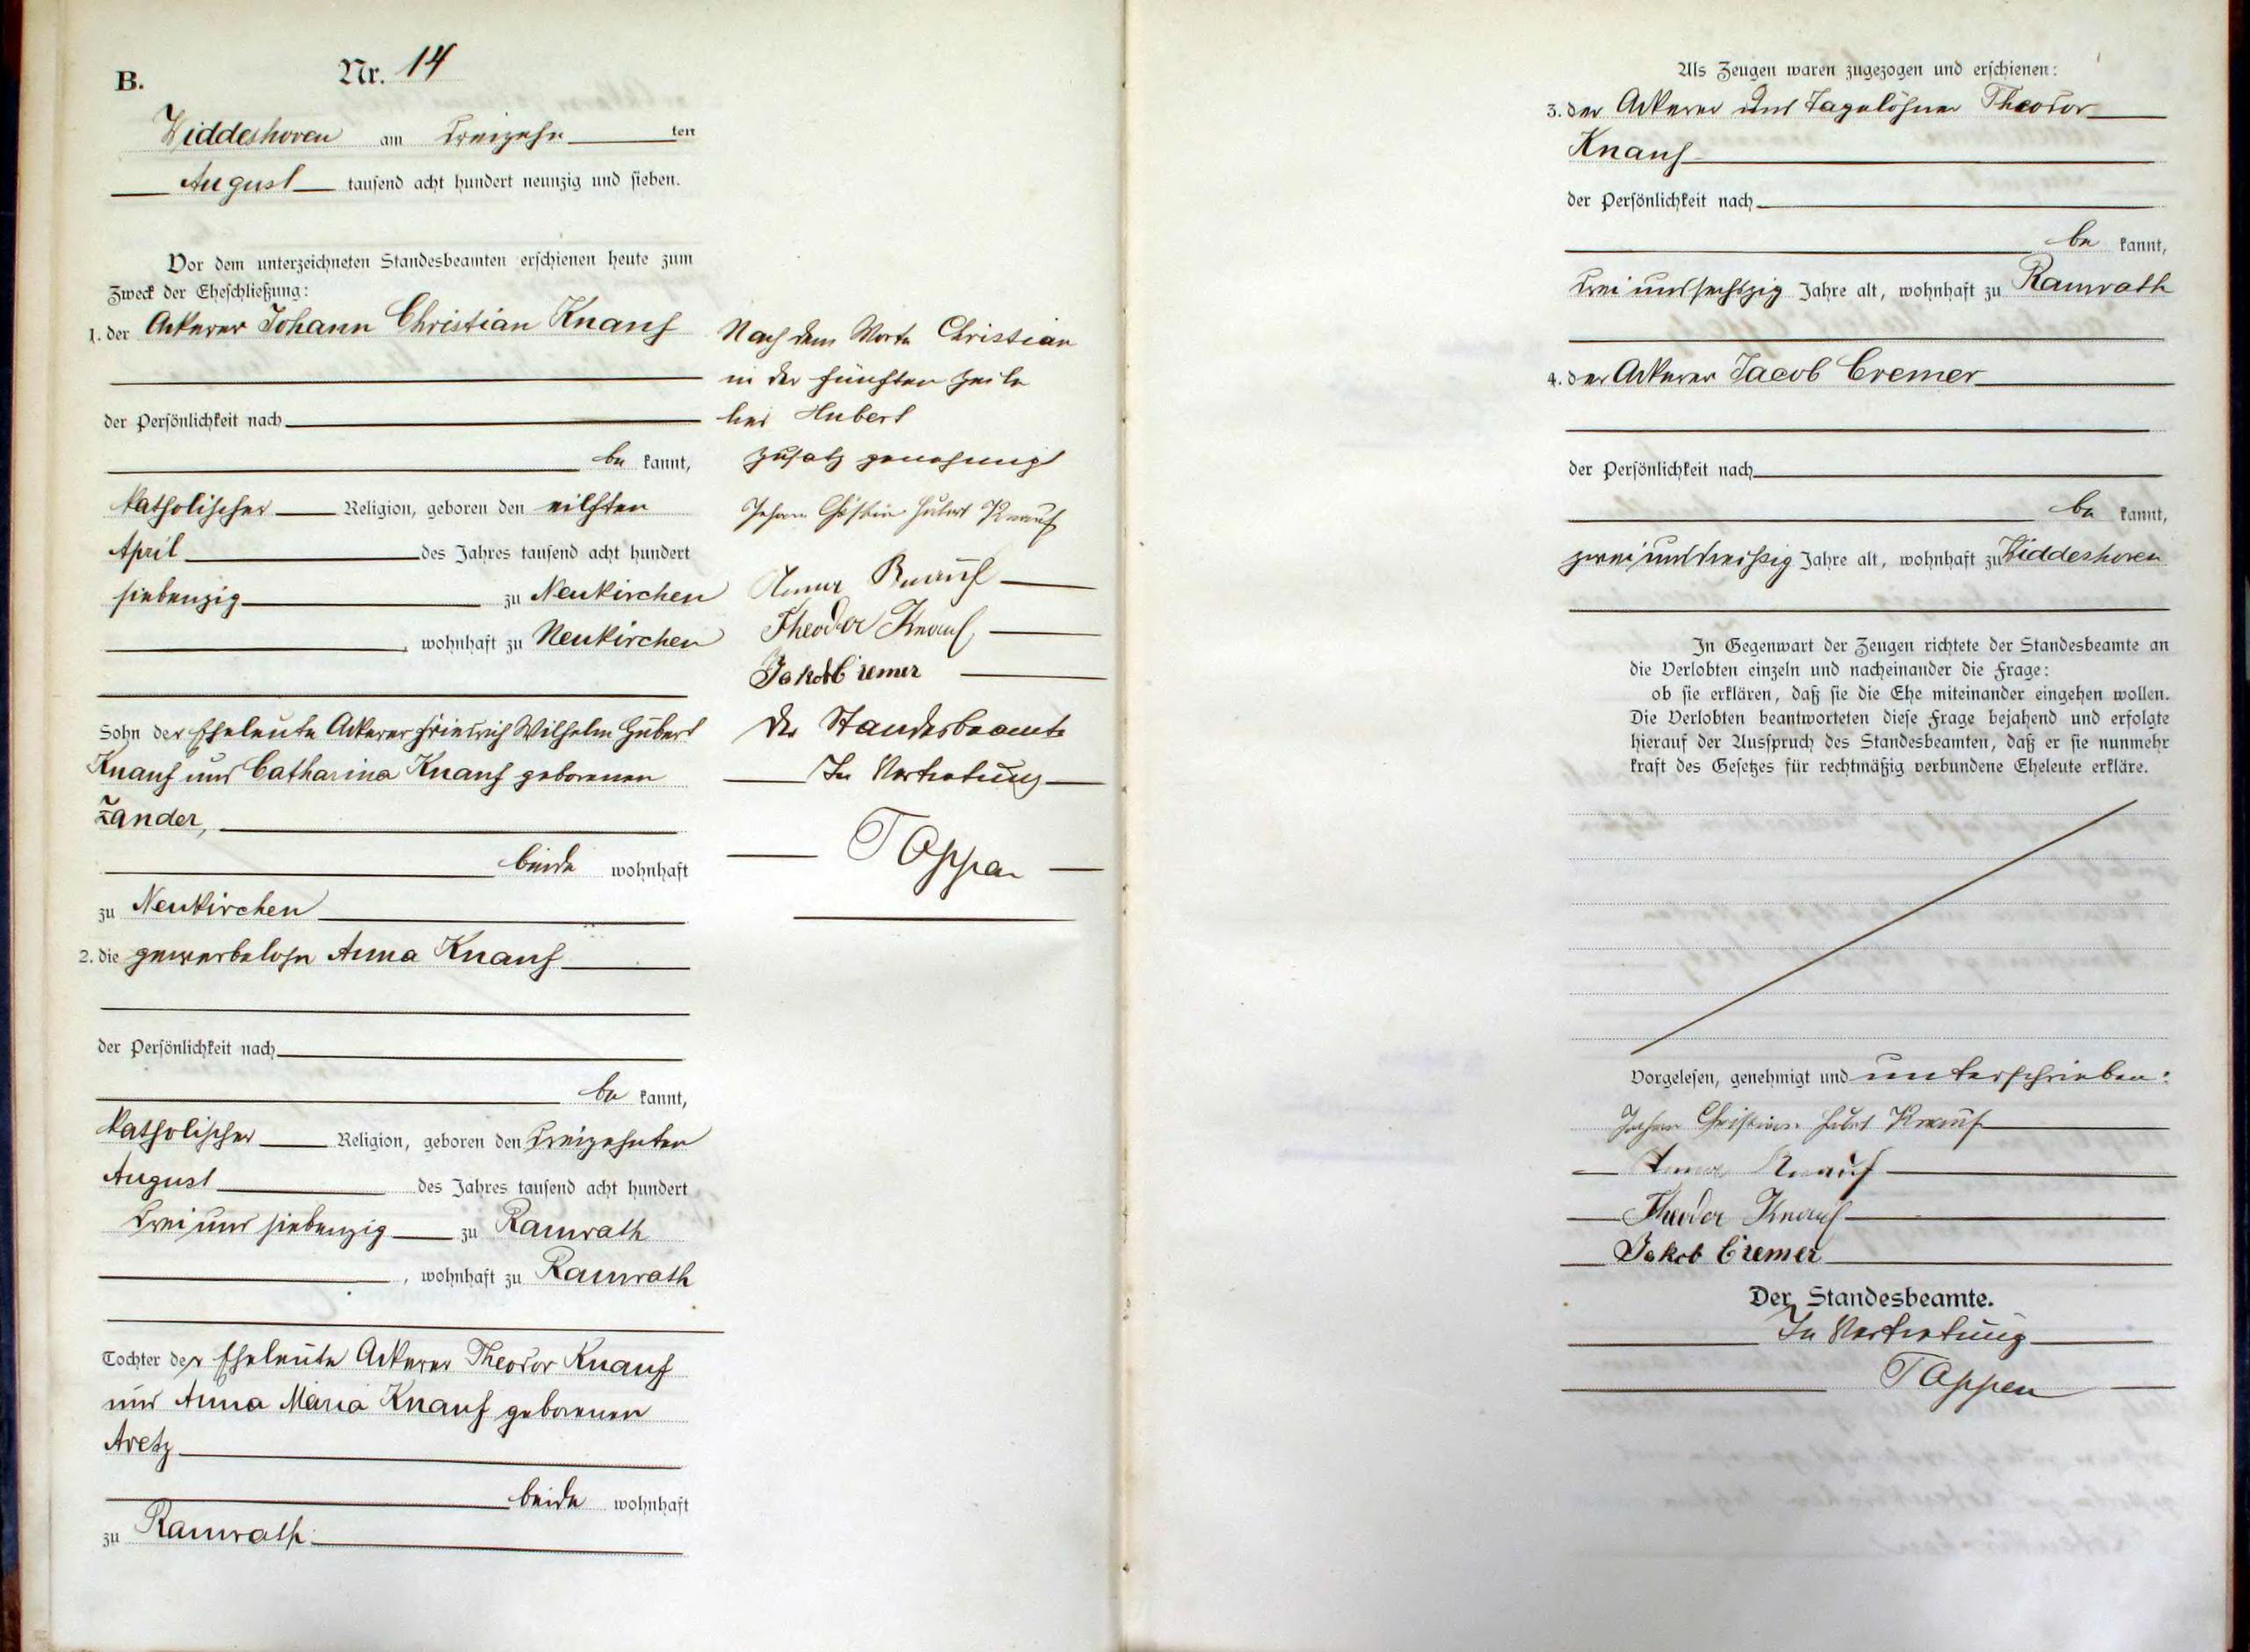 B.
Nr. 14
Widdeshoven am dreizehn ten
August tausend acht hundert neunzig und sieben.
Vor dem unterzeichneten Standesbeamten erschienen heute zum
Zweck der Eheschließung:
1. der Ackerer Johann Christian Knauf
der Persönlichkeit nach
be kannt,
katholischer Religion, geboren den eilften
April des Jahres tausend acht hundert
siebenzig zu Neukirchen
, wohnhaft zu Neukirchen
Sohn der Eheleute Ackerer Friedrich Wilhelm Hubert
Knauf und Catharina Knauf geborenen
Zander,
beide wohnhaft
zu Neukirchen
2. die gewerbelose Anna Knauf
der Persönlichkeit nach
be kannt,
katholischer Religion, geboren den dreizehnten
August des Jahres tausend acht hundert
drei und siebenzig zu Ramrath
, wohnhaft zu Ramrath
Tochter der Eheleute Ackerer Theodor Knauf
und Anna Maria Knauf geborenen
Aretz
beide wohnhaft
zu Ramrath.
Nach dem Worte Christian
in der fünften Zeile
lies Hubert
Zusatz genehmigt
Johann Christian Hubert Knauf
Anna Knauf
Theodor Knauf
Jakob Cremer
Der Standesbeamte
In Vertretung
Tappen
Als Zeugen waren zugezogen und erschienen:
3. der Ackerer und Tagelöhner Theodor
Knauf
der Persönlichkeit nach
be kannt,
drei und sechszig Jahre alt, wohnhaft zu Ramrath
4. der Ackerer Jacob Cremer
der Persönlichkeit nach
be kannt,
zwei und dreißig Jahre alt, wohnhaft zu Widdeshoven
In Gegenwart der Zeugen richtete der Standesbeamte an
die Verlobten einzeln und nacheinander die Frage:
ob sie erklären, daß sie die Ehe miteinander eingehen wollen.
Die Verlobten beantworteten diese Frage bejahend und erfolgte
hierauf der Ausspruch des Standesbeamten, daß er sie nunmehr
kraft des Gesetzes für rechtmäßig verbundene Eheleute erkläre.
Vorgelesen, genehmigt und unterschrieben:
Johann Christian Hubert Knauf
Anna Knauf
Theodor Knauf
Jakob Cremer
Der Standesbeamte.
In Vertretung
Tappen